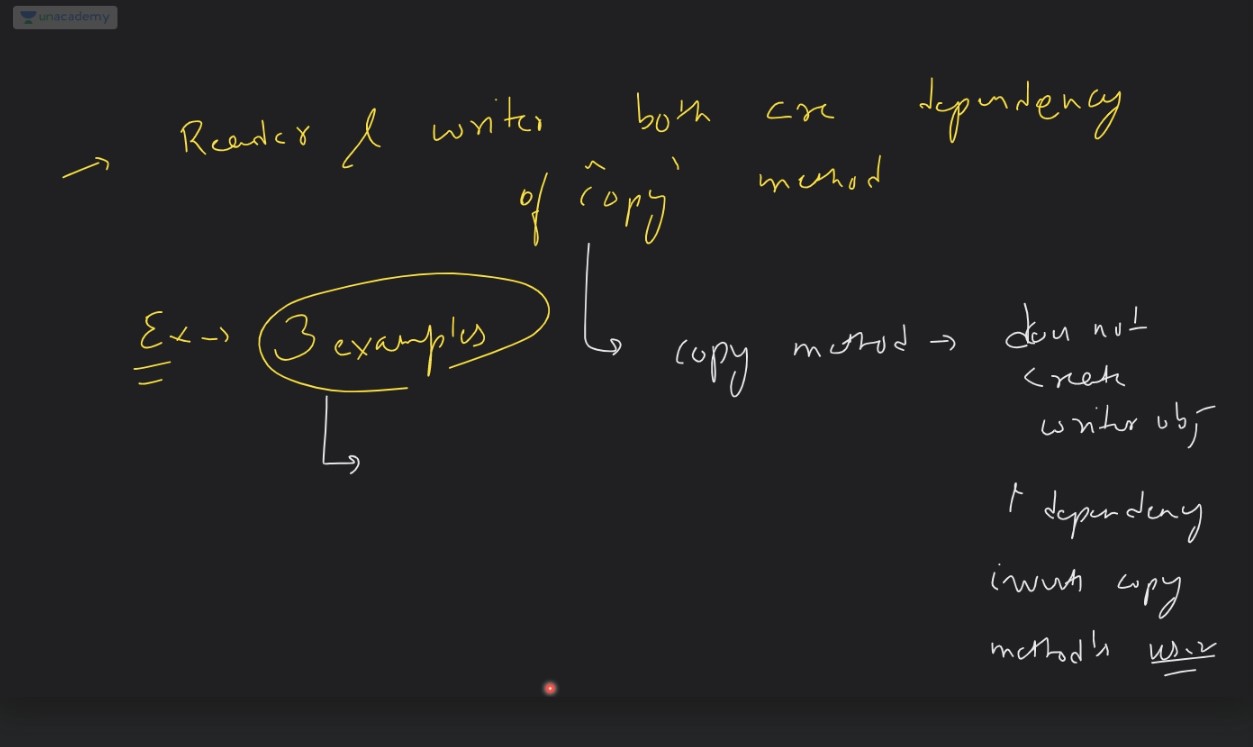 unacademy
→ Reader & writer both are dependency
of 'copy' method
Ex → 3 examples
copy method → does not
create
writer obj
↑ dependency
invert copy
method's user